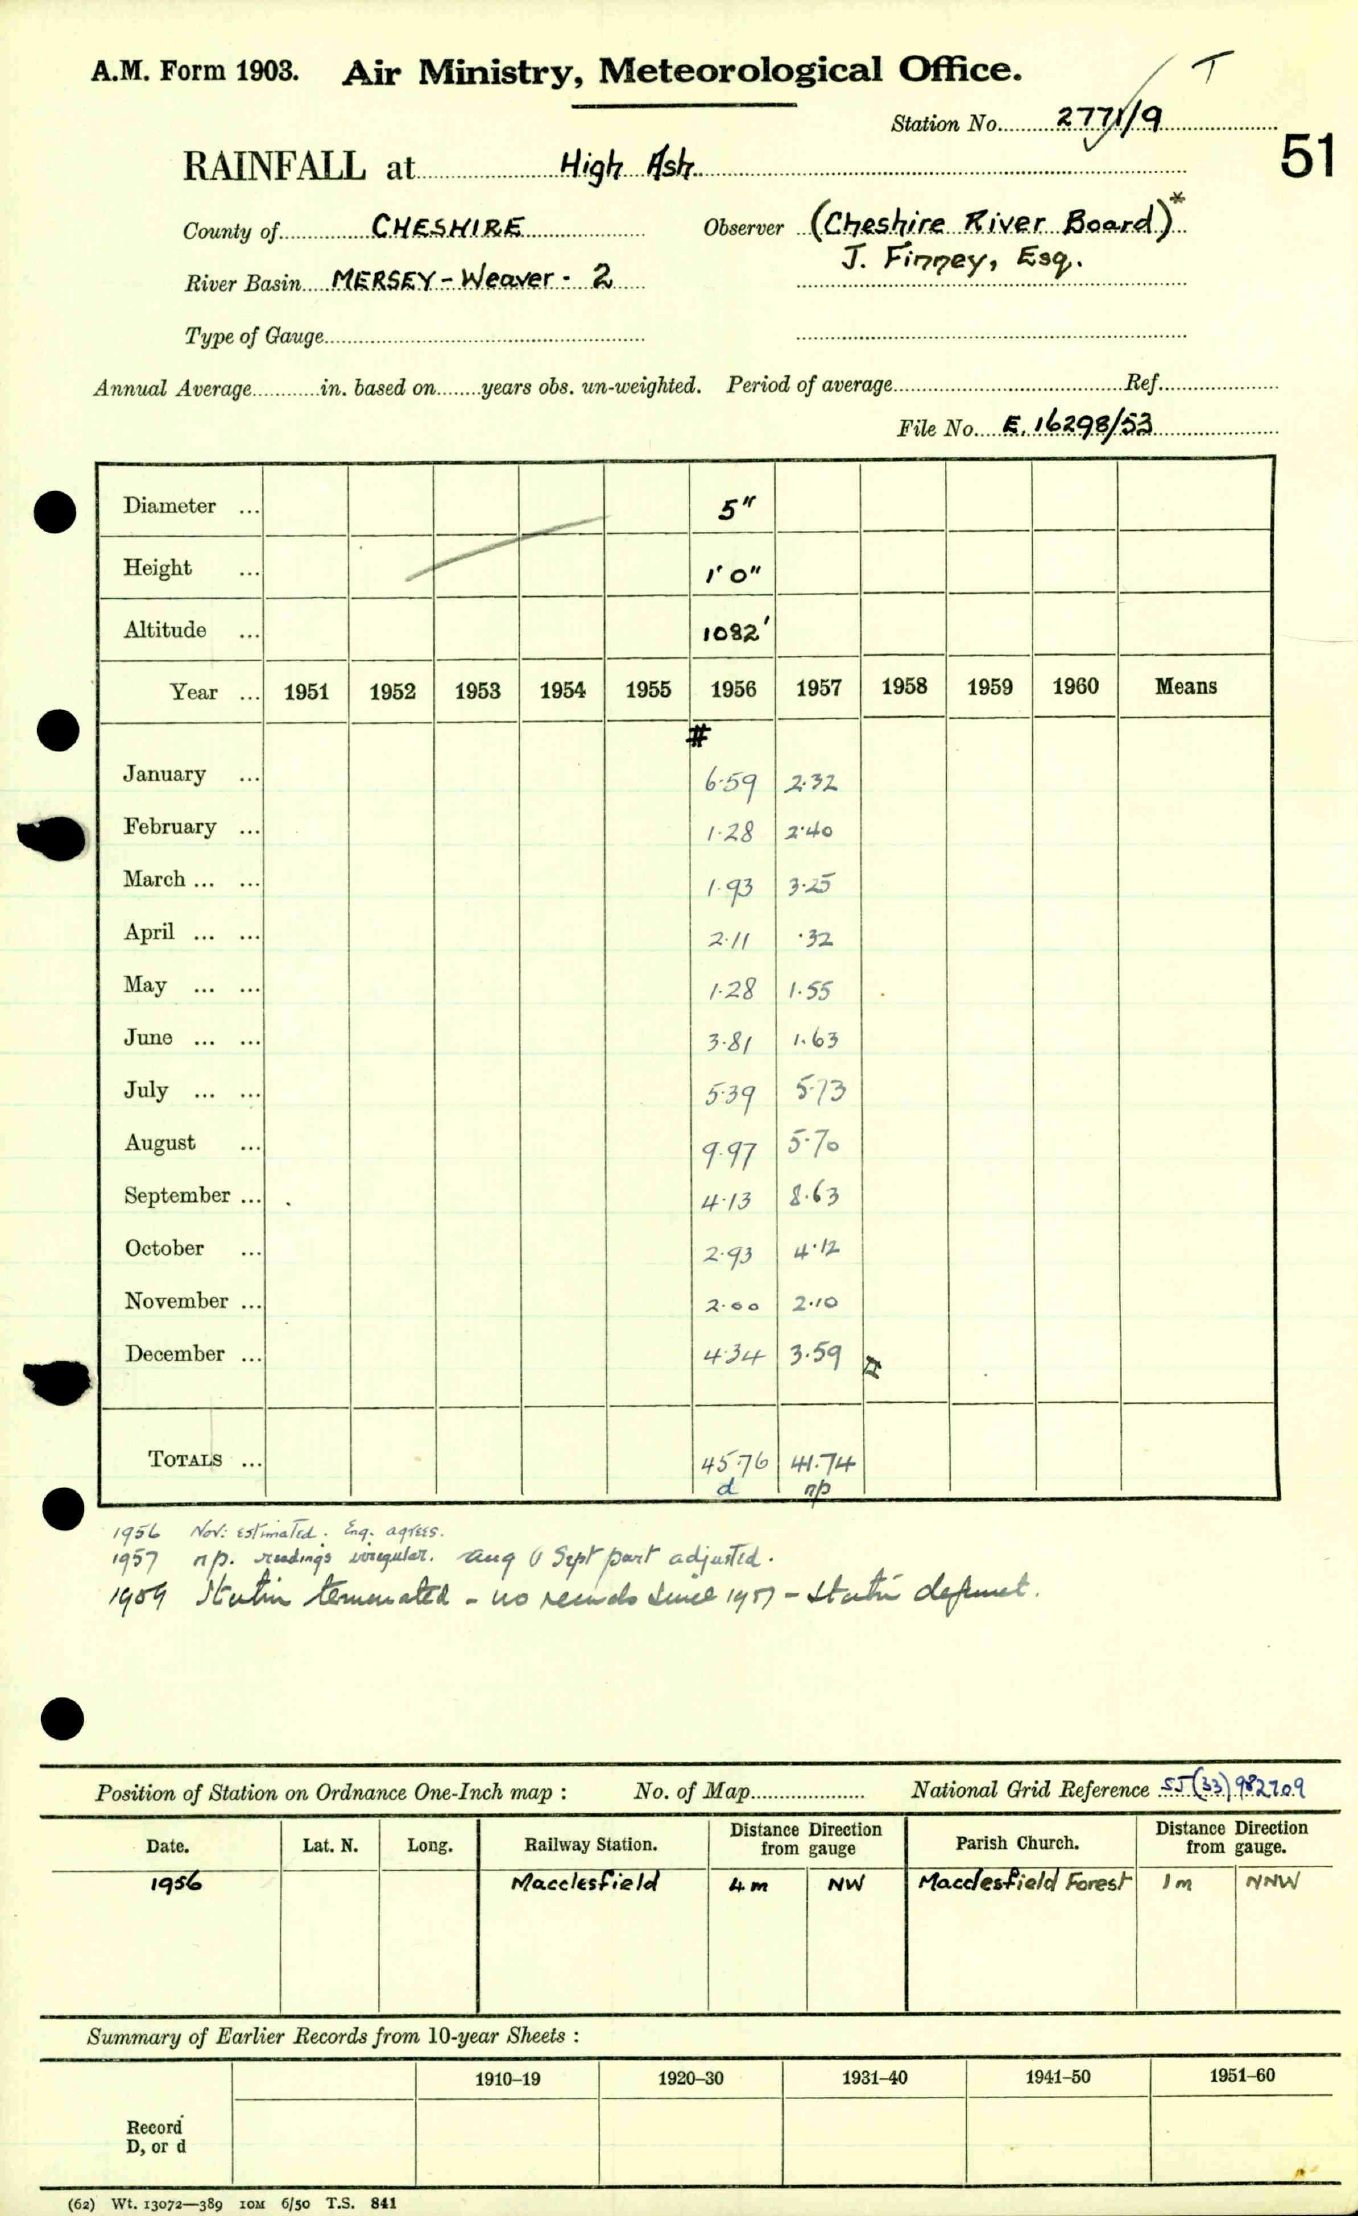 A.M. Form 1903. Air Ministry, Meteorological Office. T
Station No. 2771/9
51
RAINFALL at High Ash
County of CHESHIRE Observer (Cheshire River Board)*
J. Finney, Esq.
River Basin MERSEY - Weaver - 2
Type of Gauge
Annual Average in. based on years obs. un-weighted. Period of average Ref.
File No. E. 16298/53
Diameter ... 5"
Height ... 1' 0"
Altitude ... 1082'
Year ... 1951 1952 1953 1954 1955 1956 1957 1958 1959 1960 Means
#
January ... 6.59 2.32
February ... 1.28 2.40
March ... ... 1.93 3.25
April ... ... 2.11 .32
May ... ... 1.28 1.55
June ... ... 3.81 1.63
July ... ... 5.39 5.73
August ... 9.97 5.70
September ... 4.13 8.63
October ... 2.93 4.12
November ... 2.00 2.10
December ... 4.34 3.59
TOTALS ... 45.76 41.74
d np
1956 Nov: estimated. Enq. agrees.
1957 np. readings irregular. Aug & Sept part adjusted.
1959 Station terminated - no records since 1957 - station defunct.
Position of Station on Ordnance One-Inch map : No. of Map National Grid Reference SJ(33)982709
Date. Lat. N. Long. Railway Station. Distance Direction from gauge Parish Church. Distance Direction from gauge.
1956 Macclesfield 4 m NW Macclesfield Forest 1 m NNW
Summary of Earlier Records from 10-year Sheets :
1910–19 1920–30 1931–40 1941–50 1951–60
Record
D, or d
(62) Wt. 13072—389 10M 6/50 T.S. 841